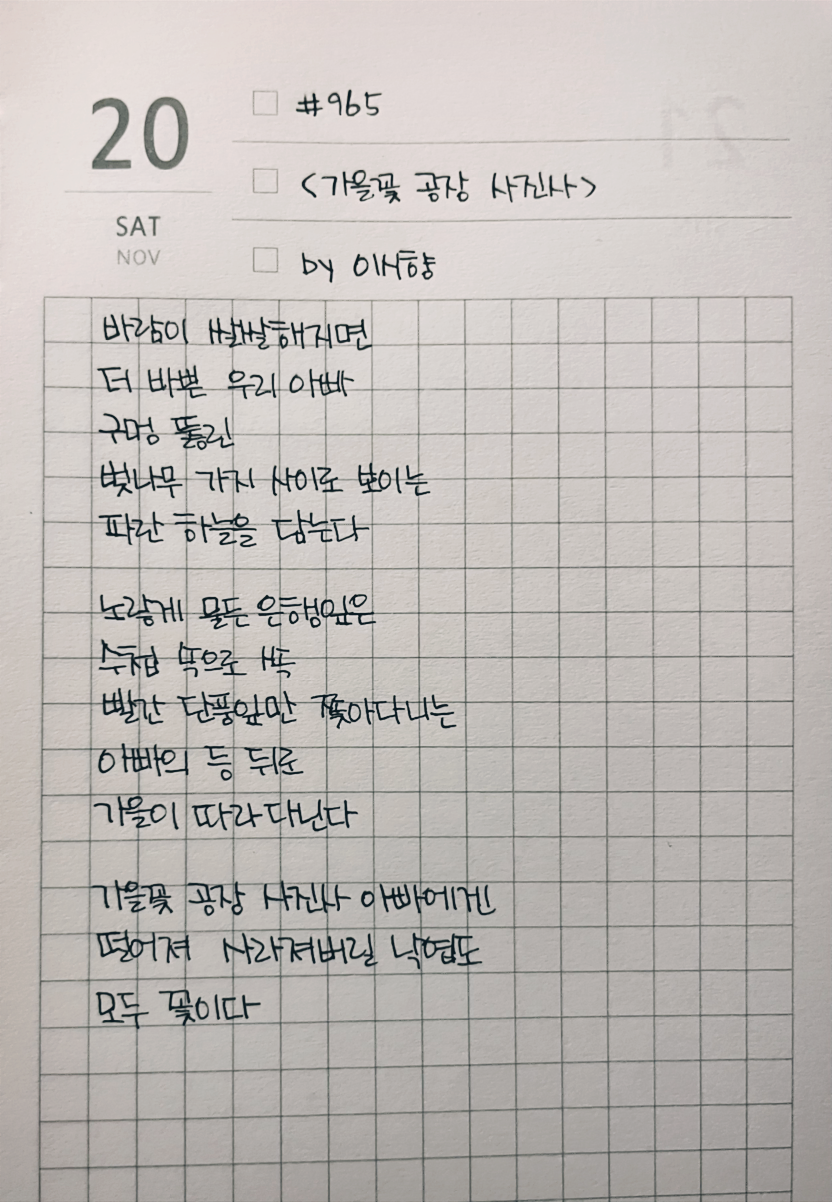 20
SAT
NOV
#965
<가을꽃 공장 사진사>
by 이서향
바람이 쌀쌀해지면
더 바쁜 우리 아빠
구멍 뚫린
벚나무 가지 사이로 보이는
파란 하늘을 담는다
노랗게 물든 은행잎은
수첩 속으로 쏙
빨간 단풍잎만 쫓아다니는
아빠의 등 뒤로
가을이 따라다닌다
가을꽃 공장 사진사 아빠에겐
떨어져 사라져버릴 낙엽도
모두 꽃이다